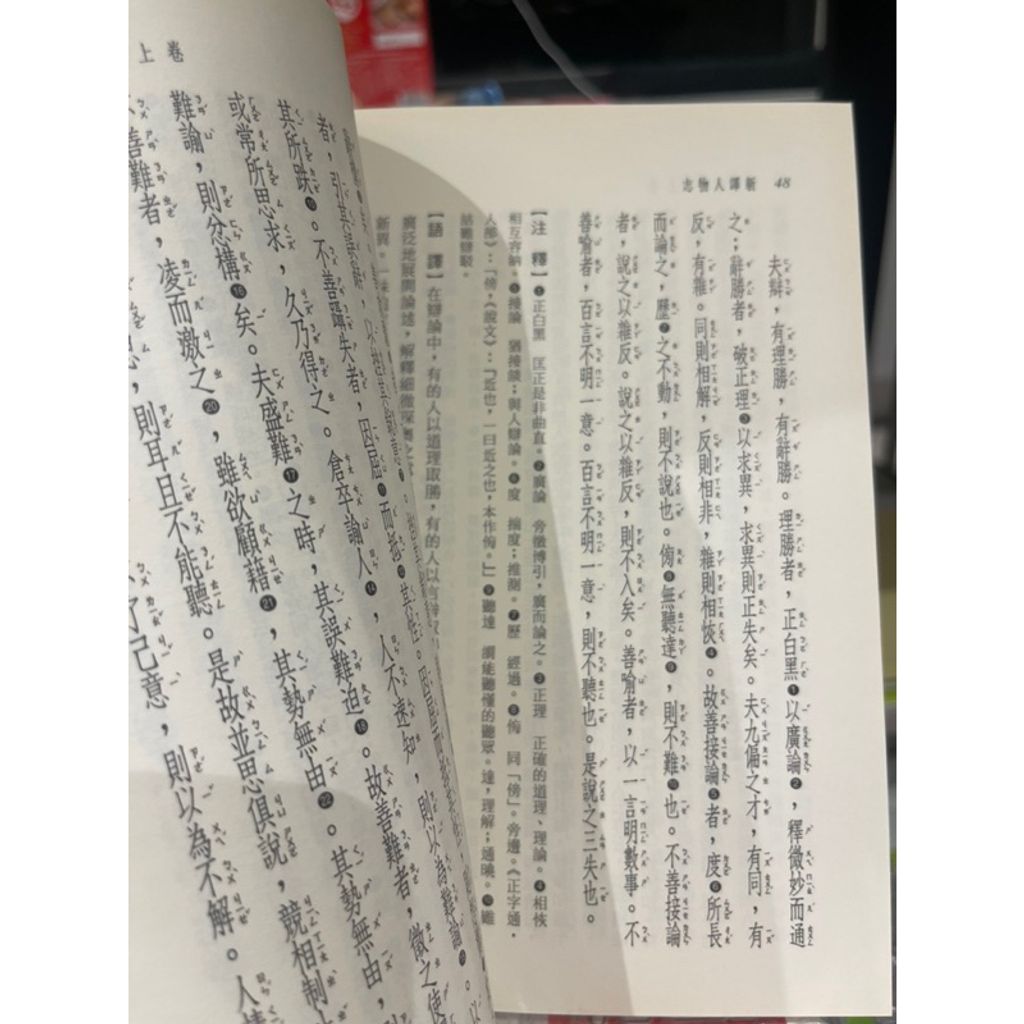 48　新譯人物志
夫辯，有理勝，有辭勝。理勝者，正白黑❶以廣論❷，釋微妙而通
之；辭勝者，破正理❸以求異，求異則正失矣。夫九偏之才，有同，有
反，有雜。同則相解，反則相非，雜則相恢❹。故善接論❺者，度❻所長
而論之，歷❼之不動，則不說也。傍❽無聽達❾，則不難❿也。不善接論
者，說之以雜反。說之以雜反，則不入矣。善喻者，以一言明數事。不
善喻者，百言不明一意。百言不明一意，則不聽也。是說之三失也。
【注　釋】❶正白黑　匡正是非曲直。❷廣論　旁徵博引，廣而論之。❸正理　正確的道理、理論。❹相恢
相互容納。❺接論　猶接談；與人辯論。❻度　揣度；推測。❼歷　經過。❽傍　同「傍」。旁邊。《正字通．
人部》：「傍，《說文》：『近也，一曰近之也，本作傍。』」❾聽達　能聽懂的聽眾。達，理解；通曉。❿難
詰難辯駁。
【語　譯】在辯論中，有的人以道理取勝，有的人以言辭取
廣泛地展開論述，解釋細微深奧之
上卷
者，引其誤
其所跌。不善躡失者，因屈而抵其性。因屈而抵其性
或常所思求，久乃得之。倉卒諭人⓮，人不速知，則以為難諭⓯。以
難諭，則忿構⓰矣。夫盛難⓱之時，其誤難迫⓲。故善難者，徵之使
善難者，凌而激之⓴，雖欲顧藉㉑，其勢無由㉒。其勢無由，
則耳且不能聽。是故並思俱說，競相制
己意，則以為不解。人情